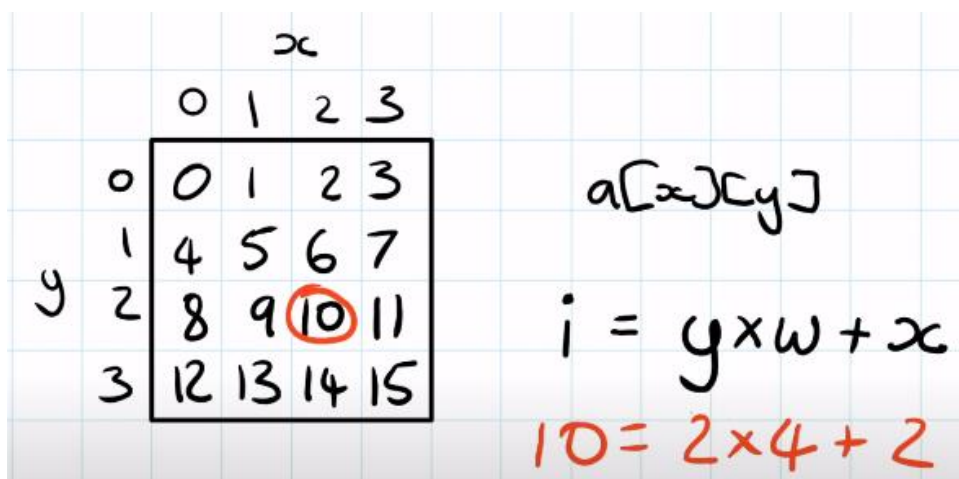 x
0 1 2 3
0 0 1 2 3
1 4 5 6 7
y 2 8 9 10 11
3 12 13 14 15
a[x][y]
i = y×w+x
10 = 2×4+2